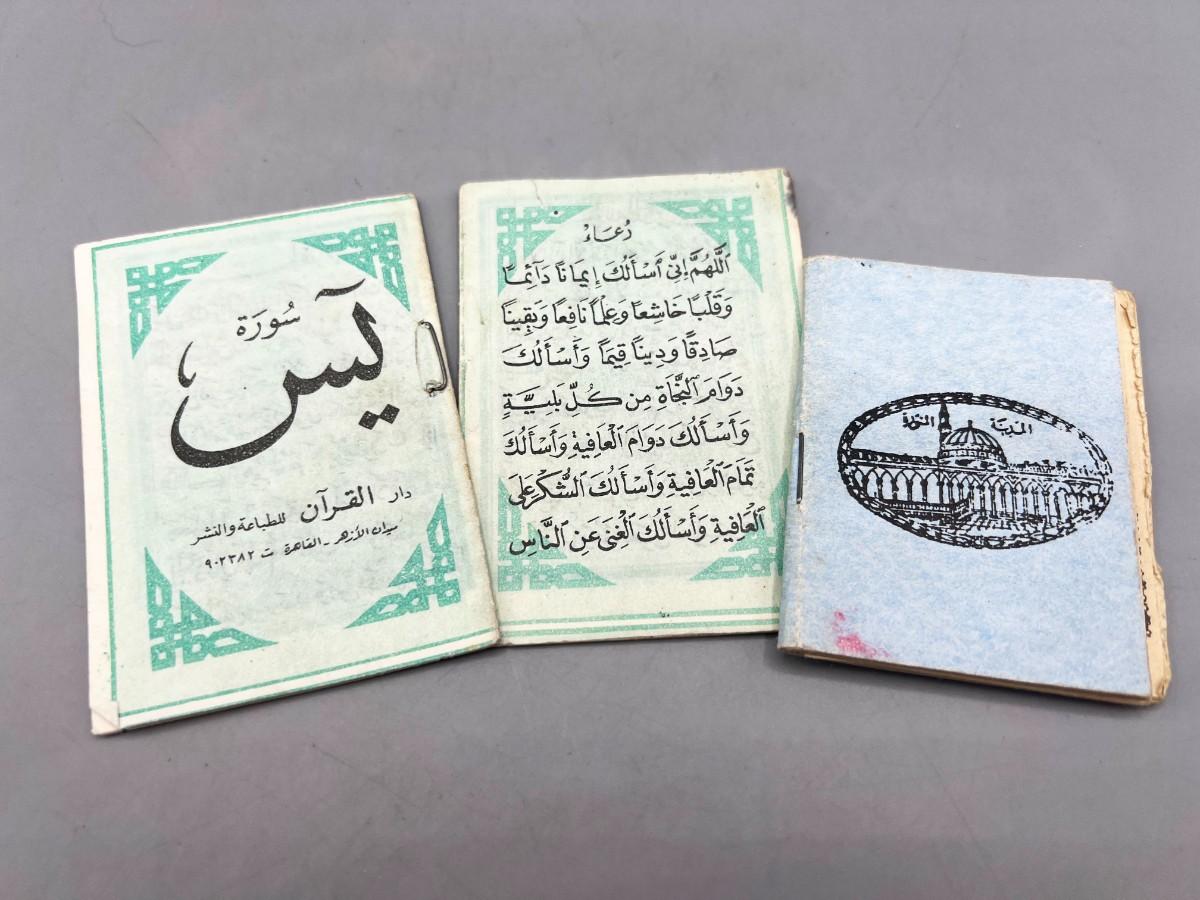 سُورَة
يٓسٓ
دار القرآن للطباعة والنشر
ميدان الأزهر - القاهرة ت ٩٠٢٣٨٢
دُعَاءْ
اَللَّهُمَّ إِنِّي أَسْأَلُكَ إِيمَانًا دَآئِمًا
وَقَلْبًا خَاشِعًا وَعِلْمًا نَافِعًا وَيَقِينًا
صَادِقًا وَدِينًا قَيِّمًا وَأَسْأَلُكَ
دَوَامَ ٱلنَّجَاةِ مِن كُلِّ بَلِيَّةٍ
وَأَسْأَلُكَ دَوَامَ ٱلْعَافِيَةِ وَأَسْأَلُكَ
تَمَامَ ٱلْعَافِيَةِ وَأَسْأَلُكَ ٱلشُّكْرَ عَلَى
ٱلْعَافِيَةِ وَأَسْأَلُكَ ٱلْغِنَى عَنِ ٱلنَّاسِ
المدينة المنورة